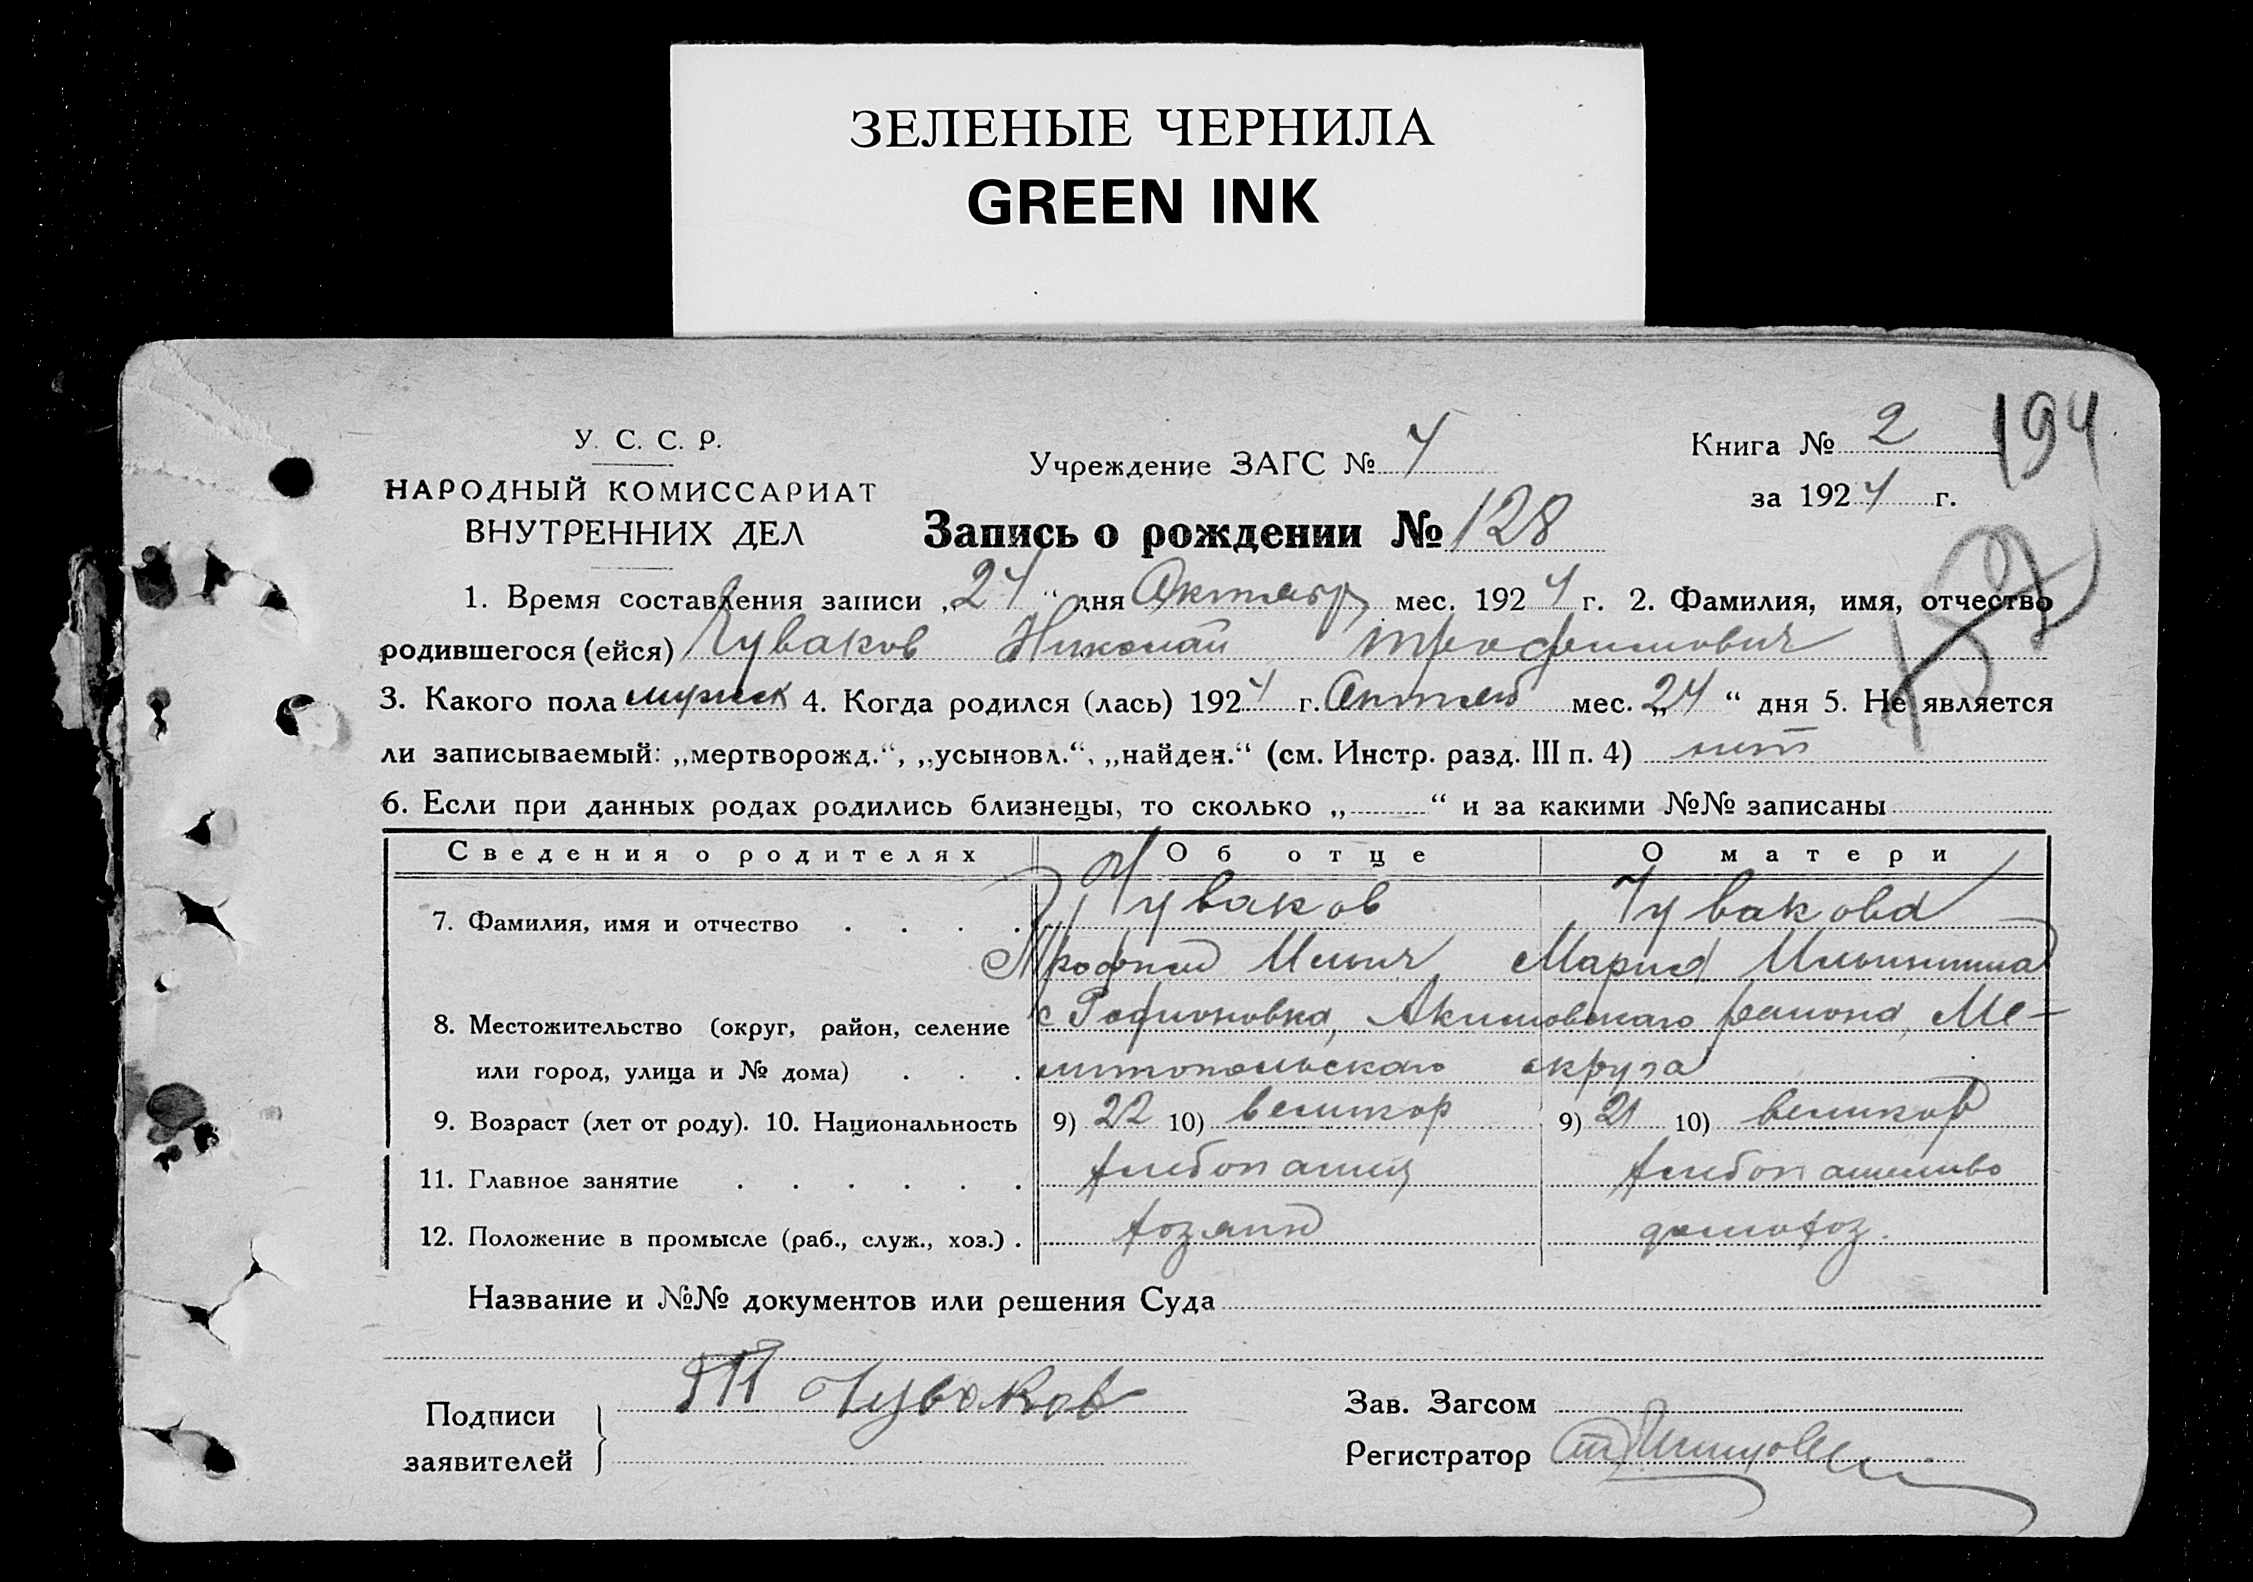 ЗЕЛЕНЫЕ ЧЕРНИЛА
GREEN INK
194
У. С. С. Р.
НАРОДНЫЙ КОМИССАРИАТ
ВНУТРЕННИХ ДЕЛ
Учреждение ЗАГС № 4
Книга № 2
за 1924 г.
Запись о рождении № 128
1. Время составления записи „24“ дня Октября мес. 1924 г. 2. Фамилия, имя, отчество
родившегося (ейся) Чуваков Николай Трофимович
3. Какого пола мужск 4. Когда родился (лась) 1924 г. Октяб мес. „24“ дня 5. Не является
ли записываемый: „мертворожд.“, „усыновл.“, „найден.“ (см. Инстр. разд. III п. 4) нет
6. Если при данных родах родились близнецы, то сколько „ “ и за какими №№ записаны
Сведения о родителях Об отце О матери
7. Фамилия, имя и отчество . . . . Чуваков Чувакова
Трофим Ильич Мария Ильинишна
8. Местожительство (округ, район, селение с Родионовка, Акимовскаго района, Ме-
или город, улица и № дома) . . . литопольскаго округа
9. Возраст (лет от роду). 10. Национальность 9) 22 10) великор 9) 21 10) великор
11. Главное занятие . . . . . . хлебопашец хлебопашество
12. Положение в промысле (раб., служ., хоз.) . хозяин домохоз.
Название и №№ документов или решения Суда
Подписи
заявителей
Чуваков
Зав. Загсом
Регистратор